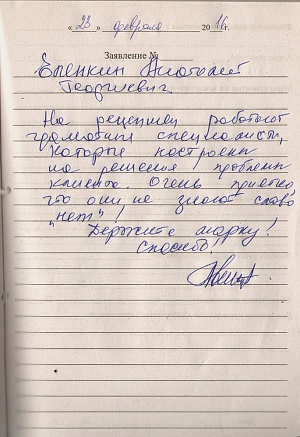 « 23 » февраля 2016г.
Заявление №
Еленкин Анатолий
Георгиевич
На рецепшен работают
грамотные специалисты,
которые настроены
на решения проблемы
клиента. Очень приятно,
что они не знают слово
"нет"!
Держите марку!
Спасибо!